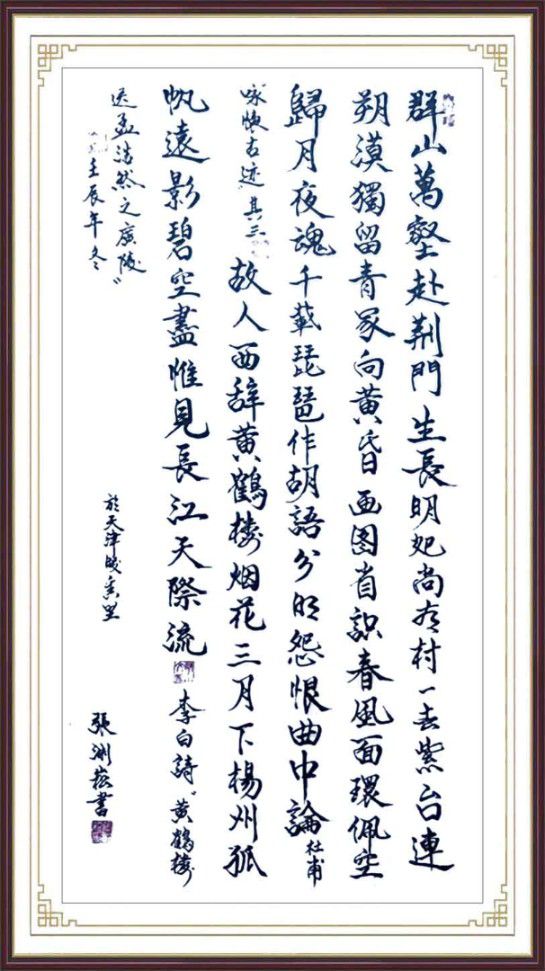 群山萬壑赴荆門生長明妃尚有村一去紫台連
朔漠獨留青冢向黄昏画图省識春風面環佩空
歸月夜魂千載琵琶作胡語分明怨恨曲中論杜甫
咏懷古迹其三故人西辞黄鶴楼烟花三月下楊州孤
帆遠影碧空盡惟見長江天際流李白詩“黄鶴楼
送孟浩然之廣陵”
壬辰年冬於天津里
張渊書